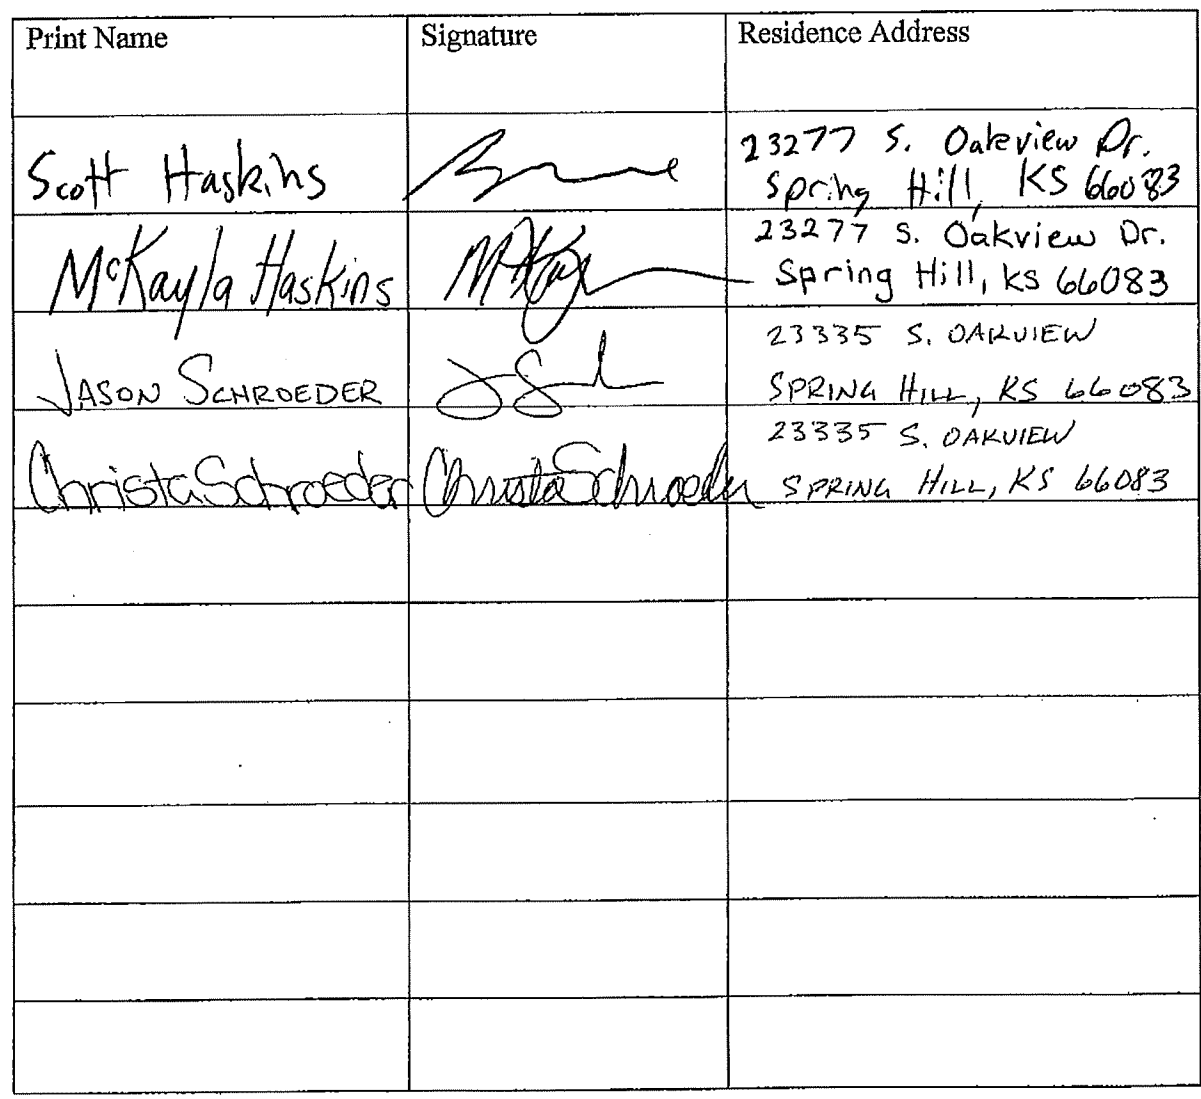 Print Name Signature Residence Address
Scott Haskins 23277 S. Oakview Dr.
Spring Hill, KS 66083
McKayla Haskins 23277 S. Oakview Dr.
Spring Hill, KS 66083
JASON SCHROEDER 23335 S. OAKVIEW
SPRING HILL, KS 66083
Christa Schroeder Christa Schroeder 23335 S. OAKVIEW
SPRING HILL, KS 66083